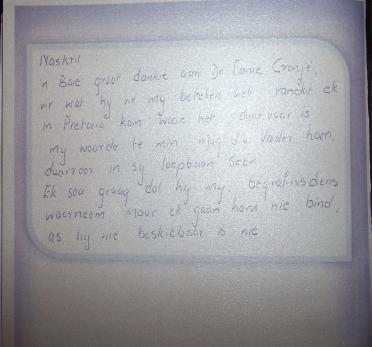 Naskrif
'n Baie groot dankie aan Dr Fanie Cronjé,
vir wat hy vir my beteken het vandat ek
in Pretoria kom woon het, daarvoor is
my woorde te min. Mag die Vader hom,
daarvoor in sy loopbaan seën.
Ek sou graag dat hy my begrafnisdiens
waarneem maar ek gaan hom nie bind,
as hy nie beskikbaar is nie